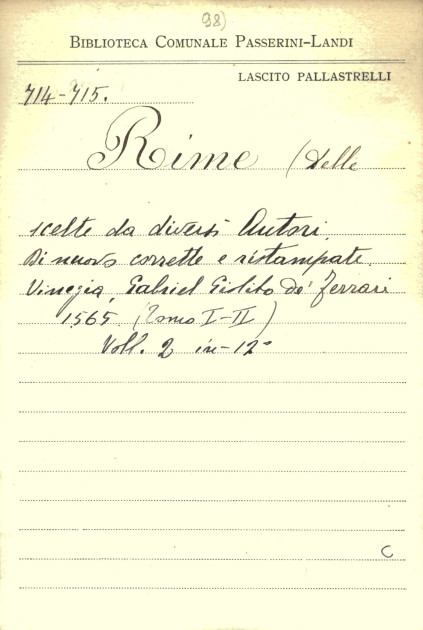 98)
BIBLIOTECA COMUNALE PASSERINI-LANDI
LASCITO PALLASTRELLI
714-715.
Rime (Delle
scelte da diversi Autori,
Di nuovo corrette e ristampate.
Vinegia, Gabriel Giolito de' Ferrari
1565 (Tomo I-II)
Voll. 2 in-12°
C